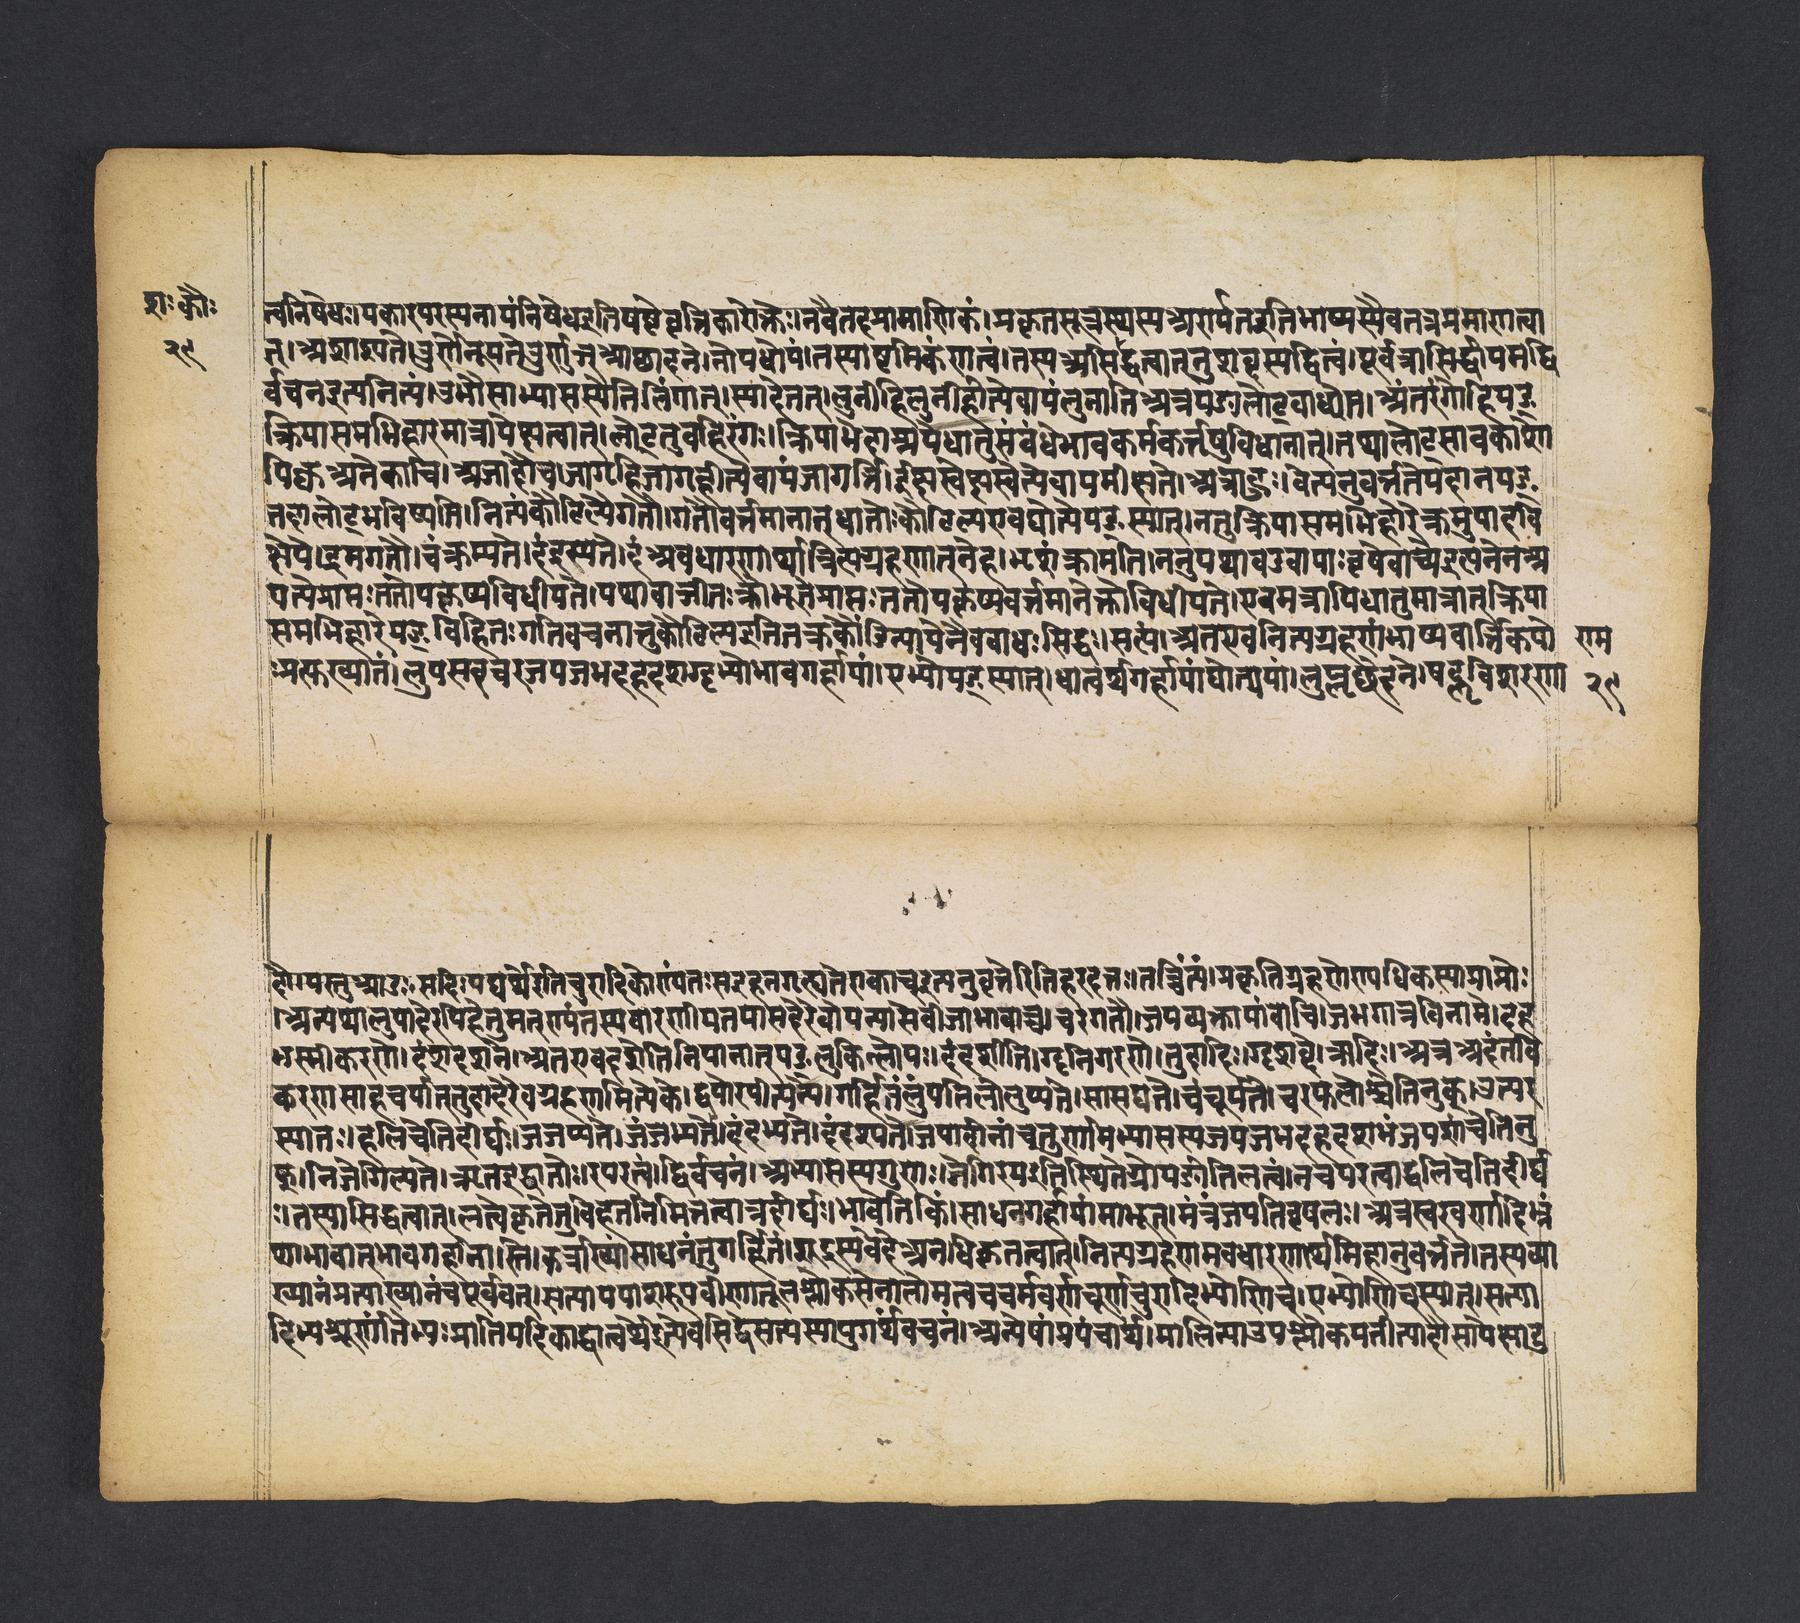 श॰ कौ॰
२९
त्वनिषेधः। यकारपरस्य नायं निषेध इति षष्ठे वृत्तिकारोक्तेः। न चैतदप्रामाणिकं। प्रकृतसूत्रस्थस्य अरार्यत इति भाष्यस्यैव तत्र प्रमाणत्वा
त्। अशाश्यते। ऊर्णोनूयते ऊर्णुञ् आच्छादने। णोपधोयं। तस्याष्टमिकं णत्वं। तस्य असिद्धत्वात् नुशब्दस्य द्वित्वं। पूर्वत्रासिद्धीयमद्वि
र्वचन इत्यनित्यं। उभौ साभ्यासस्येति लिंगात्। स्यादेतत्। लुनीहि लुनीहीत्येवायं लुनाति अत्र यङा लोट् बाध्येत। अंतरंगो हि यङ्
क्रियासमभिहारमात्रापेक्षत्वात्। लोट् तु बहिरंगः। धातुसंबंधे भावकर्मकर्तृषु विधानात्। तथा लोट् सावकाशो
पि अनेकाचि। अजादौ च। जागृहि जागृहीत्येवायं जागर्त्ति। ईहस्वेहस्वेत्येवायमीहते। अत्राहुः। वेत्यनुवर्त्तते यदा न यङ्
तदा लोट् भविष्यति। नित्यं कौटिल्ये गतौ। गतौ वर्त्तमानात् धातोः कौटिल्य एव द्योत्ये यङ् स्यात्। न तु क्रियासमभिहारे। क्रमु पादवि
क्षेपे। द्रम गतौ। चंक्रम्यते। दंद्रम्यते। अवधारणार्थान्नित्यग्रहणात् नेह। भृशं क्रामति। ननु यथा वडवायाः वृषे वाच्ये इत्यनेन अ
पत्ये प्राप्तः ततोपकृष्य विधीयते। यथा वा ञीतः क्तो भूते प्राप्तः ततोपकृष्य वर्त्तमाने क्तो विधीयते। एवमत्रापि धातुमात्रात् क्रिया
समभिहारे यङ् विहितः गतिवचनात्तु कौटिल्य इति तक्रकौंडिन्यायेनैव बाधः सिद्धः। सत्यं। अत एव नित्यग्रहणं भाष्यवार्त्तिकयोः
प्रत्याख्यातं। लुपसदचरजपजभदहदशगॄभ्यो भावगर्हायां। एभ्यो यङ् स्यात्। धात्वर्थगर्हायां द्योत्यायां। लुप्लृ छेदने। षद्लृ विशरणा
राम
२९
दौ। यस्तु आङः सदि पद्यर्थे इति चुरादिः एकाच् इत्यनुवृत्तेरिति हरदत्तः। तच्चिंत्यं। प्रकृतिग्रहणे ण्यधिकस्याप्राप्तेः
। अन्यथा लुपादेरपि हेतुमत् ण्यंतस्य वारणीयतया सदेरेवोपन्यासे बीजाभावाच्च। चर गतौ। जप व्यक्तायां वाचि। जभ गात्रविनामे। दह
भस्मीकरणे। दंश दशने। अत एव दशेति निपातनात् यङ्लुकि नलोपः। दंदशीति। गॄ निगरणे। तुदादिः। गॄ शब्दे। क्र्यादिः। अत्र अदंतवि
करणसाहचर्यात् तुदादेरेव ग्रहणमित्येके। द्वयोरपीत्यन्ये। गर्हितं लुंपति लोलुप्यते। सासद्यते। चंचूर्यते। चरफलोश्चेति नुक्। उत्पर
स्यातः। हलि चेति दीर्घः। जंजप्यते। जंजभ्यते। दंदह्यते। दंदश्यते। जपादीनां चतुर्णामभ्यासस्य जपजभदहदशभंजपशां चेति नु
क्। निजेगिल्यते। ऋत इद्धातोः। रपरत्वं। द्विर्वचनं। अभ्यासस्य गुणः। जेगिर्य इति स्थिते ग्रो यङीति लत्वं। न च परत्वाद्धलि चेति दीर्घ
ः। तस्यासिद्धत्वात्। लत्वे कृते तु विहतनिमित्तत्वान्न दीर्घः। भावेति किं। साधनगर्हायां माभूत्। मंत्रं जपति वृषलः। अत्र स्वरवर्णादिभ्रं
शाभावात् भावगर्हा नास्ति। साधनं तु गर्हितं। शूद्रस्य वेदे अनधिकृतत्वात्। नित्यग्रहणमवधारणार्थमिहानुवर्त्तते। तस्य व्या
ख्यानं प्रत्याख्यानं च पूर्ववत्। सत्यापपाशरूपवीणातूलश्लोकसेनालोमत्वचवर्मवर्णचूर्णचुरादिभ्यो णिच्। एभ्यो णिच् स्यात्। सत्या
दिभ्यश्चूर्णांतेभ्यः प्रातिपदिकाद्धात्वर्थे इत्येव सिद्धे सत्यस्यापुगर्थं वचनं। अन्येषां प्रपंचार्थं।